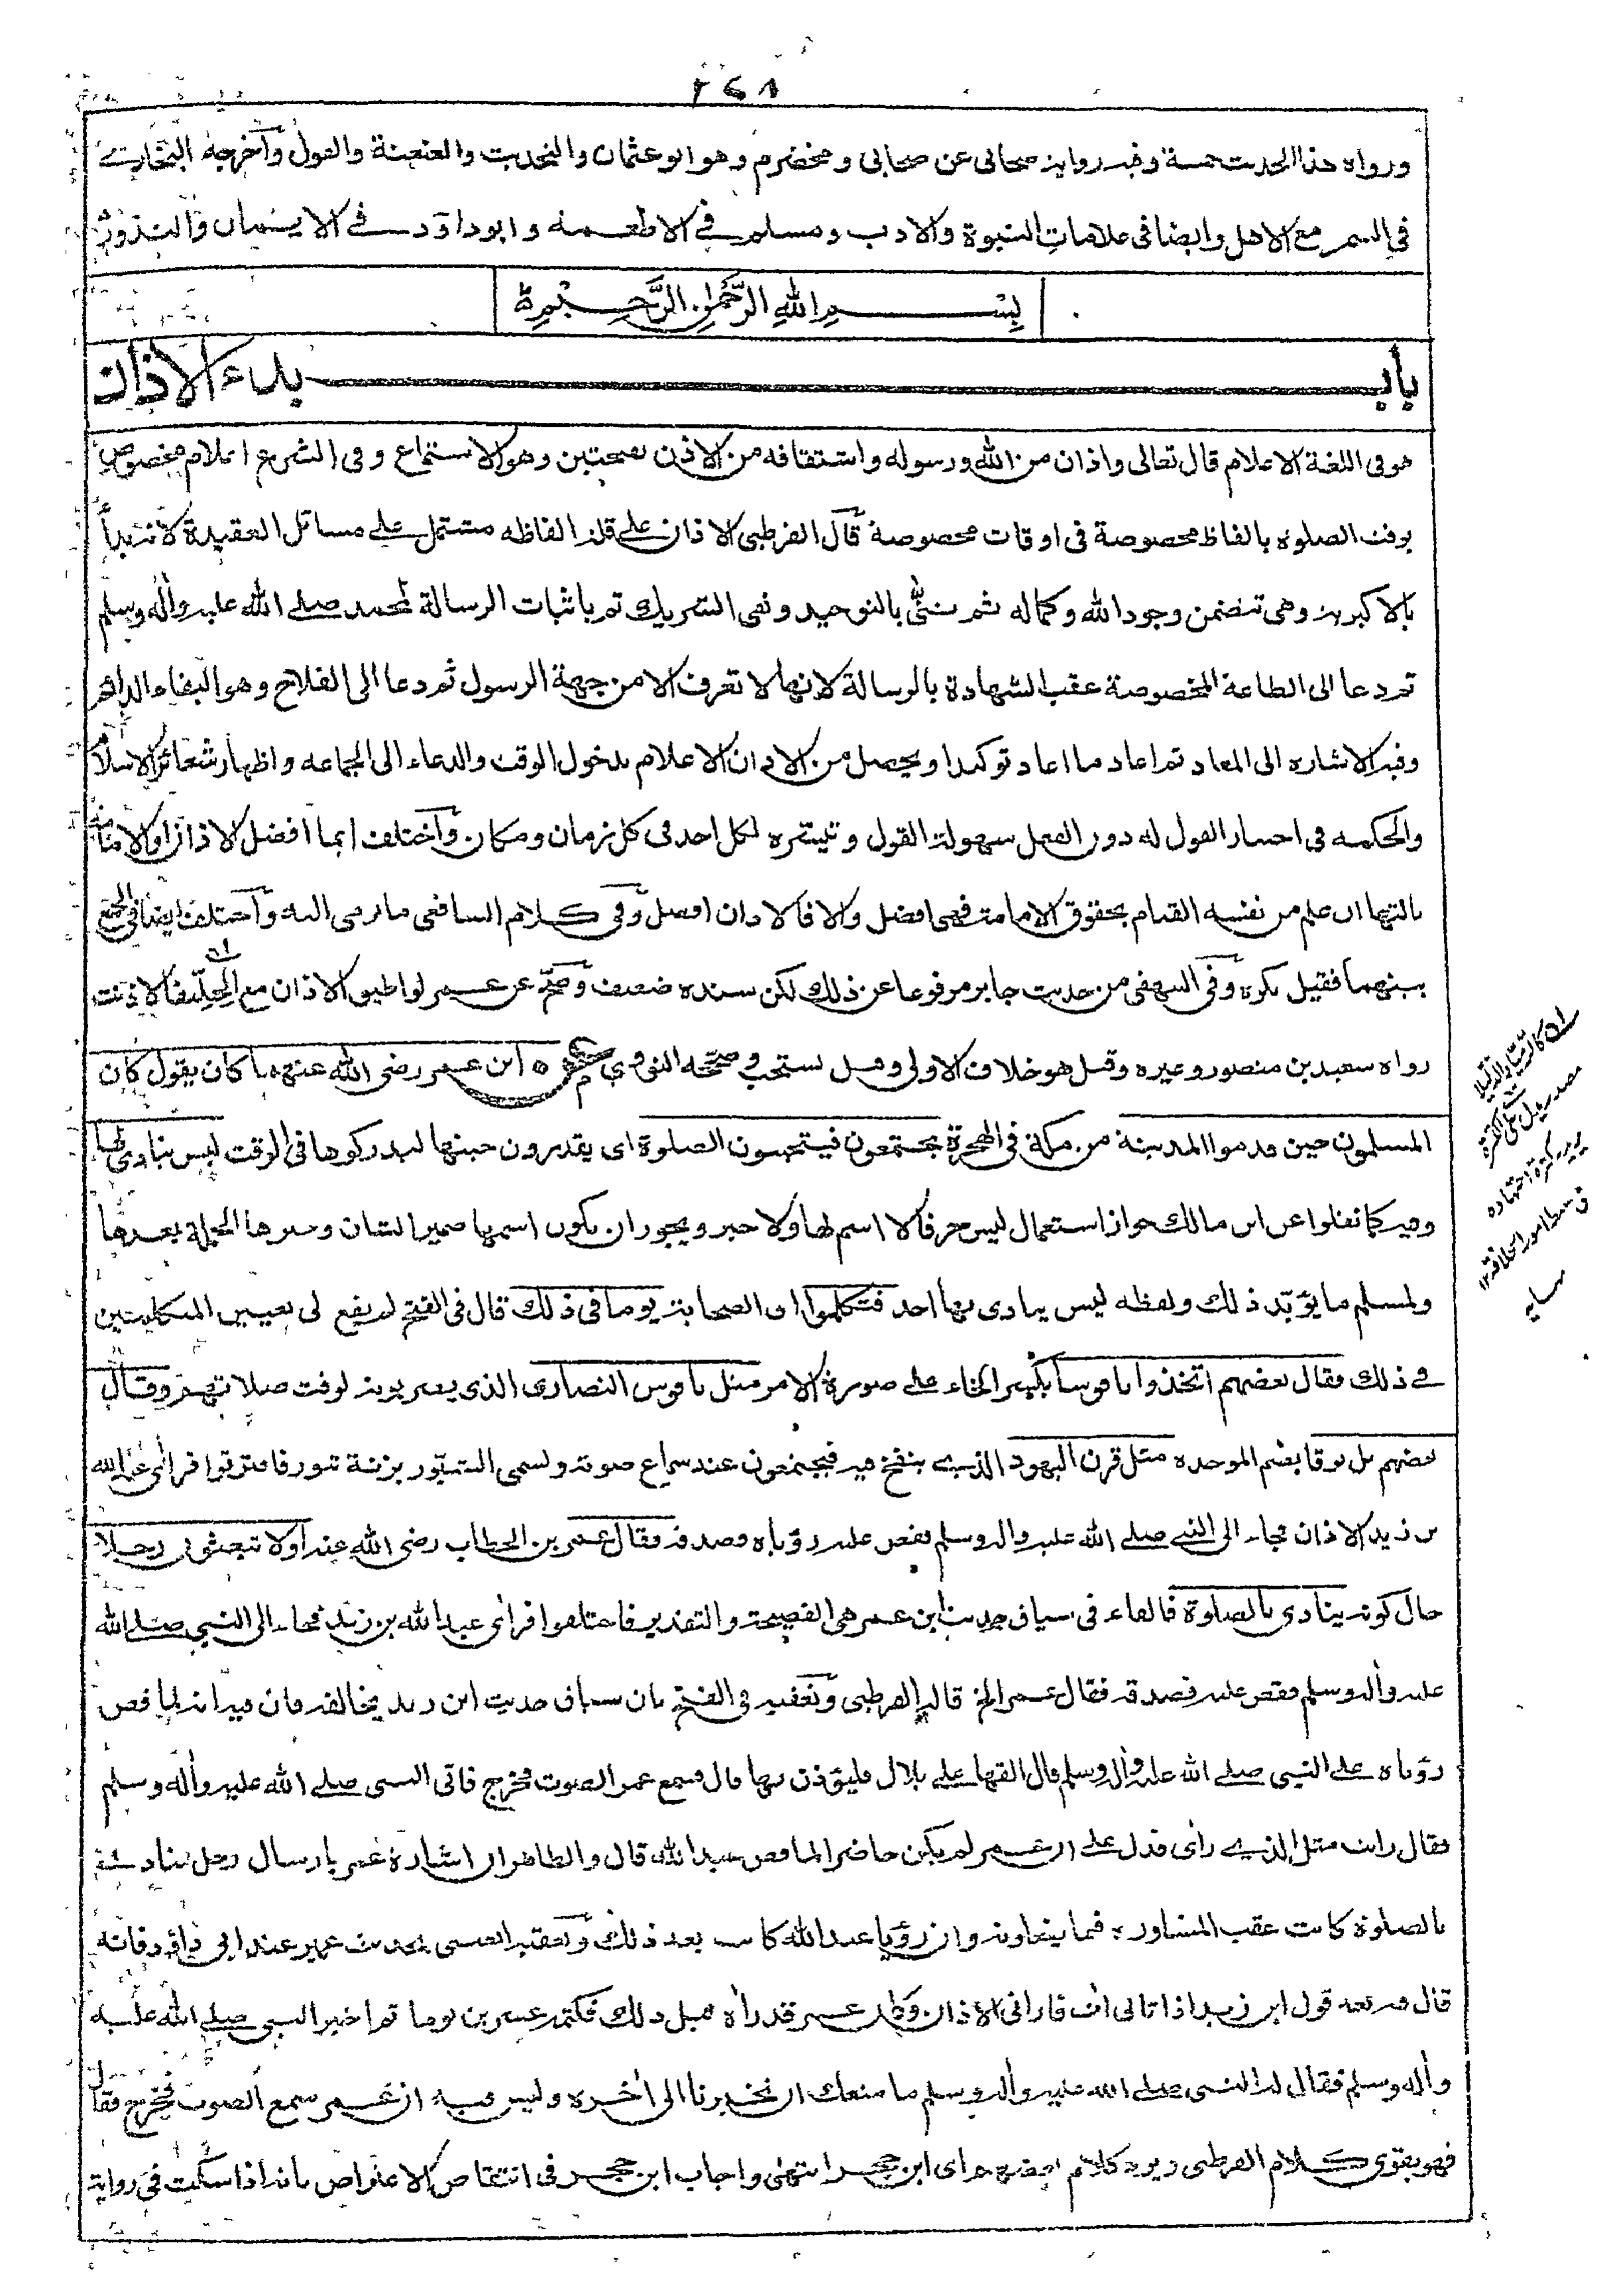 ٢٤٨
ورواه هذا الحديث خمسة وفيه رواية صحابى عن صحابى ومخضرم وهو ابو عثمان والتحديث والعنعنة والقول وأخرجه البخارى
فى السمر مع الاهل وايضا فى علامات النبوة والادب ومسلم فى الاطعمة وابوداؤد فى الايمان والنذور
بسم الله الرحمن الرحيم
باب بدء الاذان
هو فى اللغة الاعلام قال تعالى واذان من الله ورسوله واشتقاقه من الاذن بفتحتين وهو الاستماع وفى الشرع اعلام مخصوص
بوقت الصلوة بالفاظ مخصوصة فى اوقات مخصوصة قال القرطبى الاذان على قلة الفاظه مشتمل على مسائل العقيدة لانه بدأ
بالاكبرية وهى تتضمن وجود الله وكماله ثم ثنى بالتوحيد ونفى الشريك ثم باثبات الرسالة لمحمد صلے الله عليه وأله وسلم
ثم دعا الى الطاعة المخصوصة عقب الشهادة بالرسالة لانها لا تعرف الا من جهة الرسول ثم دعا الى الفلاح وهو البقاء الدائم
وفيه الاشاره الى المعاد ثم اعاد ما اعاد توكيدا ويحصل من الاذان الاعلام بدخول الوقت والدعاء الى الجماعه واظهار شعائر الاسلام
والحكمه فى اختيار القول له دون الفعل سهولة القول وتيسره لكل احد فى كل زمان ومكان واختلف ايما افضل الاذان او الامامة
ثالثها ان علم من نفسه القيام بحقوق الامامة فهى افضل والا فالاذان افضل وفى كلام الشافعى ما يومى اليه واختلف ايضا فى الجمع
بينهما فقيل يكره وفى البيهقى من حديث جابر مرفوعا عن ذلك لكن سنده ضعيف وصح عن عمر لو اطيق الاذان مع الخليفا لاذنت
رواه سعيد بن منصور وغيره وقيل هو خلاف الاولى وقيل يستحب وصححه النووي ابن عمر رضى الله عنهما كان يقول كان
المسلمون حين قدموا المدينة من مكة فى الهجرة يجتمعون فيتحينون الصلوة اى يقدرون حينها ليدركوها فى الوقت ليس ينادى لها
وفيه كما نقلوا عن ابن مالك جواز استعمال ليس حرفا لا اسم لها ولا خبر ويجوز ان يكون اسمها ضمير الشان وخبرها الجملة بعدها
ولمسلم ما يؤيد ذلك ولفظه ليس ينادى بها احد فتكلموا اى الصحابة يوما فى ذلك قال فى الفتح لم يقع لى تعيين المتكلمين
فى ذلك فقال بعضهم اتخذوا ناقوسا بكسر الخاء على صورة الامر مثل ناقوس النصارى الذى يضربونه لوقت صلاتهم وقال
بعضهم بل بوقا بضم الموحده مثل قرن اليهود الذى ينفخ فيه فيجتمعون عند سماع صوته ويسمى الشبّور بزنة تنور فافترقوا فرأى عبد الله
بن زيد الاذان فجاء الى النبى صلے الله عليه واله وسلم فقص عليه رؤياه فصدقه فقال عمر بن الخطاب رضى الله عنه أولا تبعثون رجلا
حال كونه ينادى بالصلوة فالفاء فى سياق حديث ابن عمر هى الفصيحة والتقدير فاختلفوا فرأى عبد الله بن زيد فجاء الى النبى صلے الله
عليه وأله وسلم فقص عليه فصدقه فقال عمر الخ قاله القرطبى وتعقبه فى الفتح بان سياق حديث ابن زيد يخالفه فان فيه انه لما قص
رؤياه على النبى صلے الله عليه وأله وسلم قال القها على بلال فليؤذن بها قال فسمع عمر الصوت فخرج فاتى النبى صلے الله عليه وأله وسلم
فقال رايت مثل الذى رأى فدل على ان عمر لم يكن حاضرا لما قص عبد الله قال والظاهر ان اشارة عمر بارسال رجل ينادى
بالصلوة كانت عقب المشاورة فيما يفعلونه وان رؤيا عبد الله كانت بعد ذلك وتعقبه العينى بحديث عمير عند ابى داؤد فانه
قال فيه بعد قول ابن زيد اذ اتانى ات فارانى الاذان وكان عمر قد رأه قبل ذلك فكتمه عشرين يوما ثم اخبر النبى صلے الله عليه
وأله وسلم فقال له النبى صلے الله عليه وأله وسلم ما منعك ان تخبرنا الى أخره وليس فيه ان عمر سمع الصوت فخرج فقال
فهو يقوى كلام القرطبى ويرد كلام بعضهم اى ابن حجر انتهى واجاب ابن حجر فى انتقاض الاعتراض بانه اذا سكت فى رواية